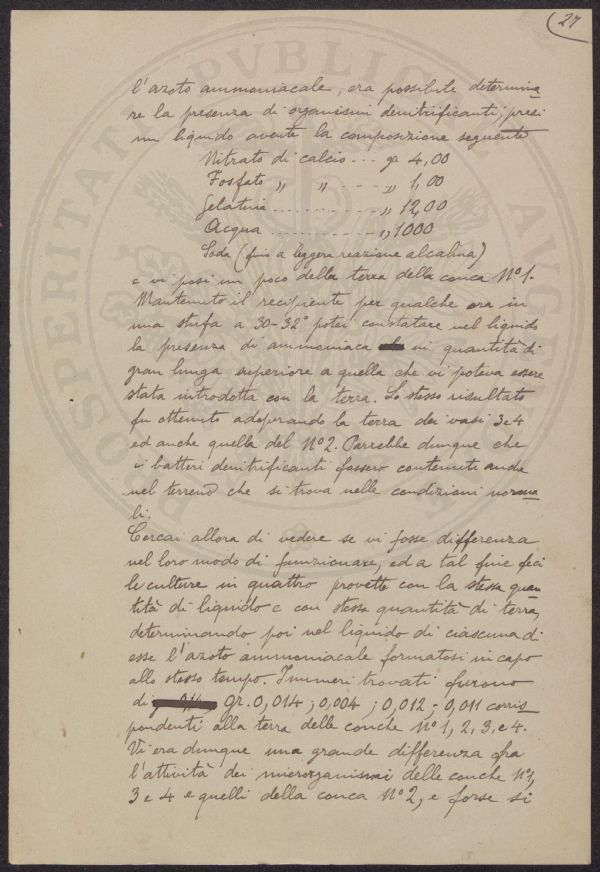 27
l'azoto ammoniacale, era possibile determina
re la presenza di organismi denitrificanti, presi
un liquido avente la composizione seguente
Nitrato di calcio --- gr 4,00
Fosfato „ „ ---- „ 1,00
Gelatina ........... „ 12,00
Acqua ............. „ 1000
Soda (fino a leggera reazione alcalina)
e vi posi un poco della terra della conca N° 1.
Mantenuto il recipiente per qualche ora in
una stufa a 30-32° potei constatare nel liquido
la presenza di ammoniaca in quantità di
gran lunga superiore a quella che vi poteva essere
stata introdotta con la terra. Lo stesso risultato
fu ottenuto adoperando la terra dei vasi 3 e 4
ed anche quella del N° 2. Parrebbe dunque che
i batteri denitrificanti fossero contenuti anche
nel terreno che si trova nelle condizioni norma
li.
Cercai allora di vedere se vi fosse differenza
nel loro modo di funzionare, ed a tal fine feci
le culture in quattro provette con la stessa quan
tità di liquido e con stessa quantità di terra,
determinando poi nel liquido di ciascuna di
esse l'azoto ammoniacale formatosi in capo
allo stesso tempo. I numeri trovati furono
di gr. 0,014; 0,004; 0,012; 0,011 corris
pondenti alla terra delle conche N° 1, 2, 3, e 4.
Vi era dunque una grande differenza fra
l'attività dei microrganismi delle conche N° 1,
3 e 4 e quelli della conca N° 2, e forse si
PROSPERITATI PVBLICAE AVGE